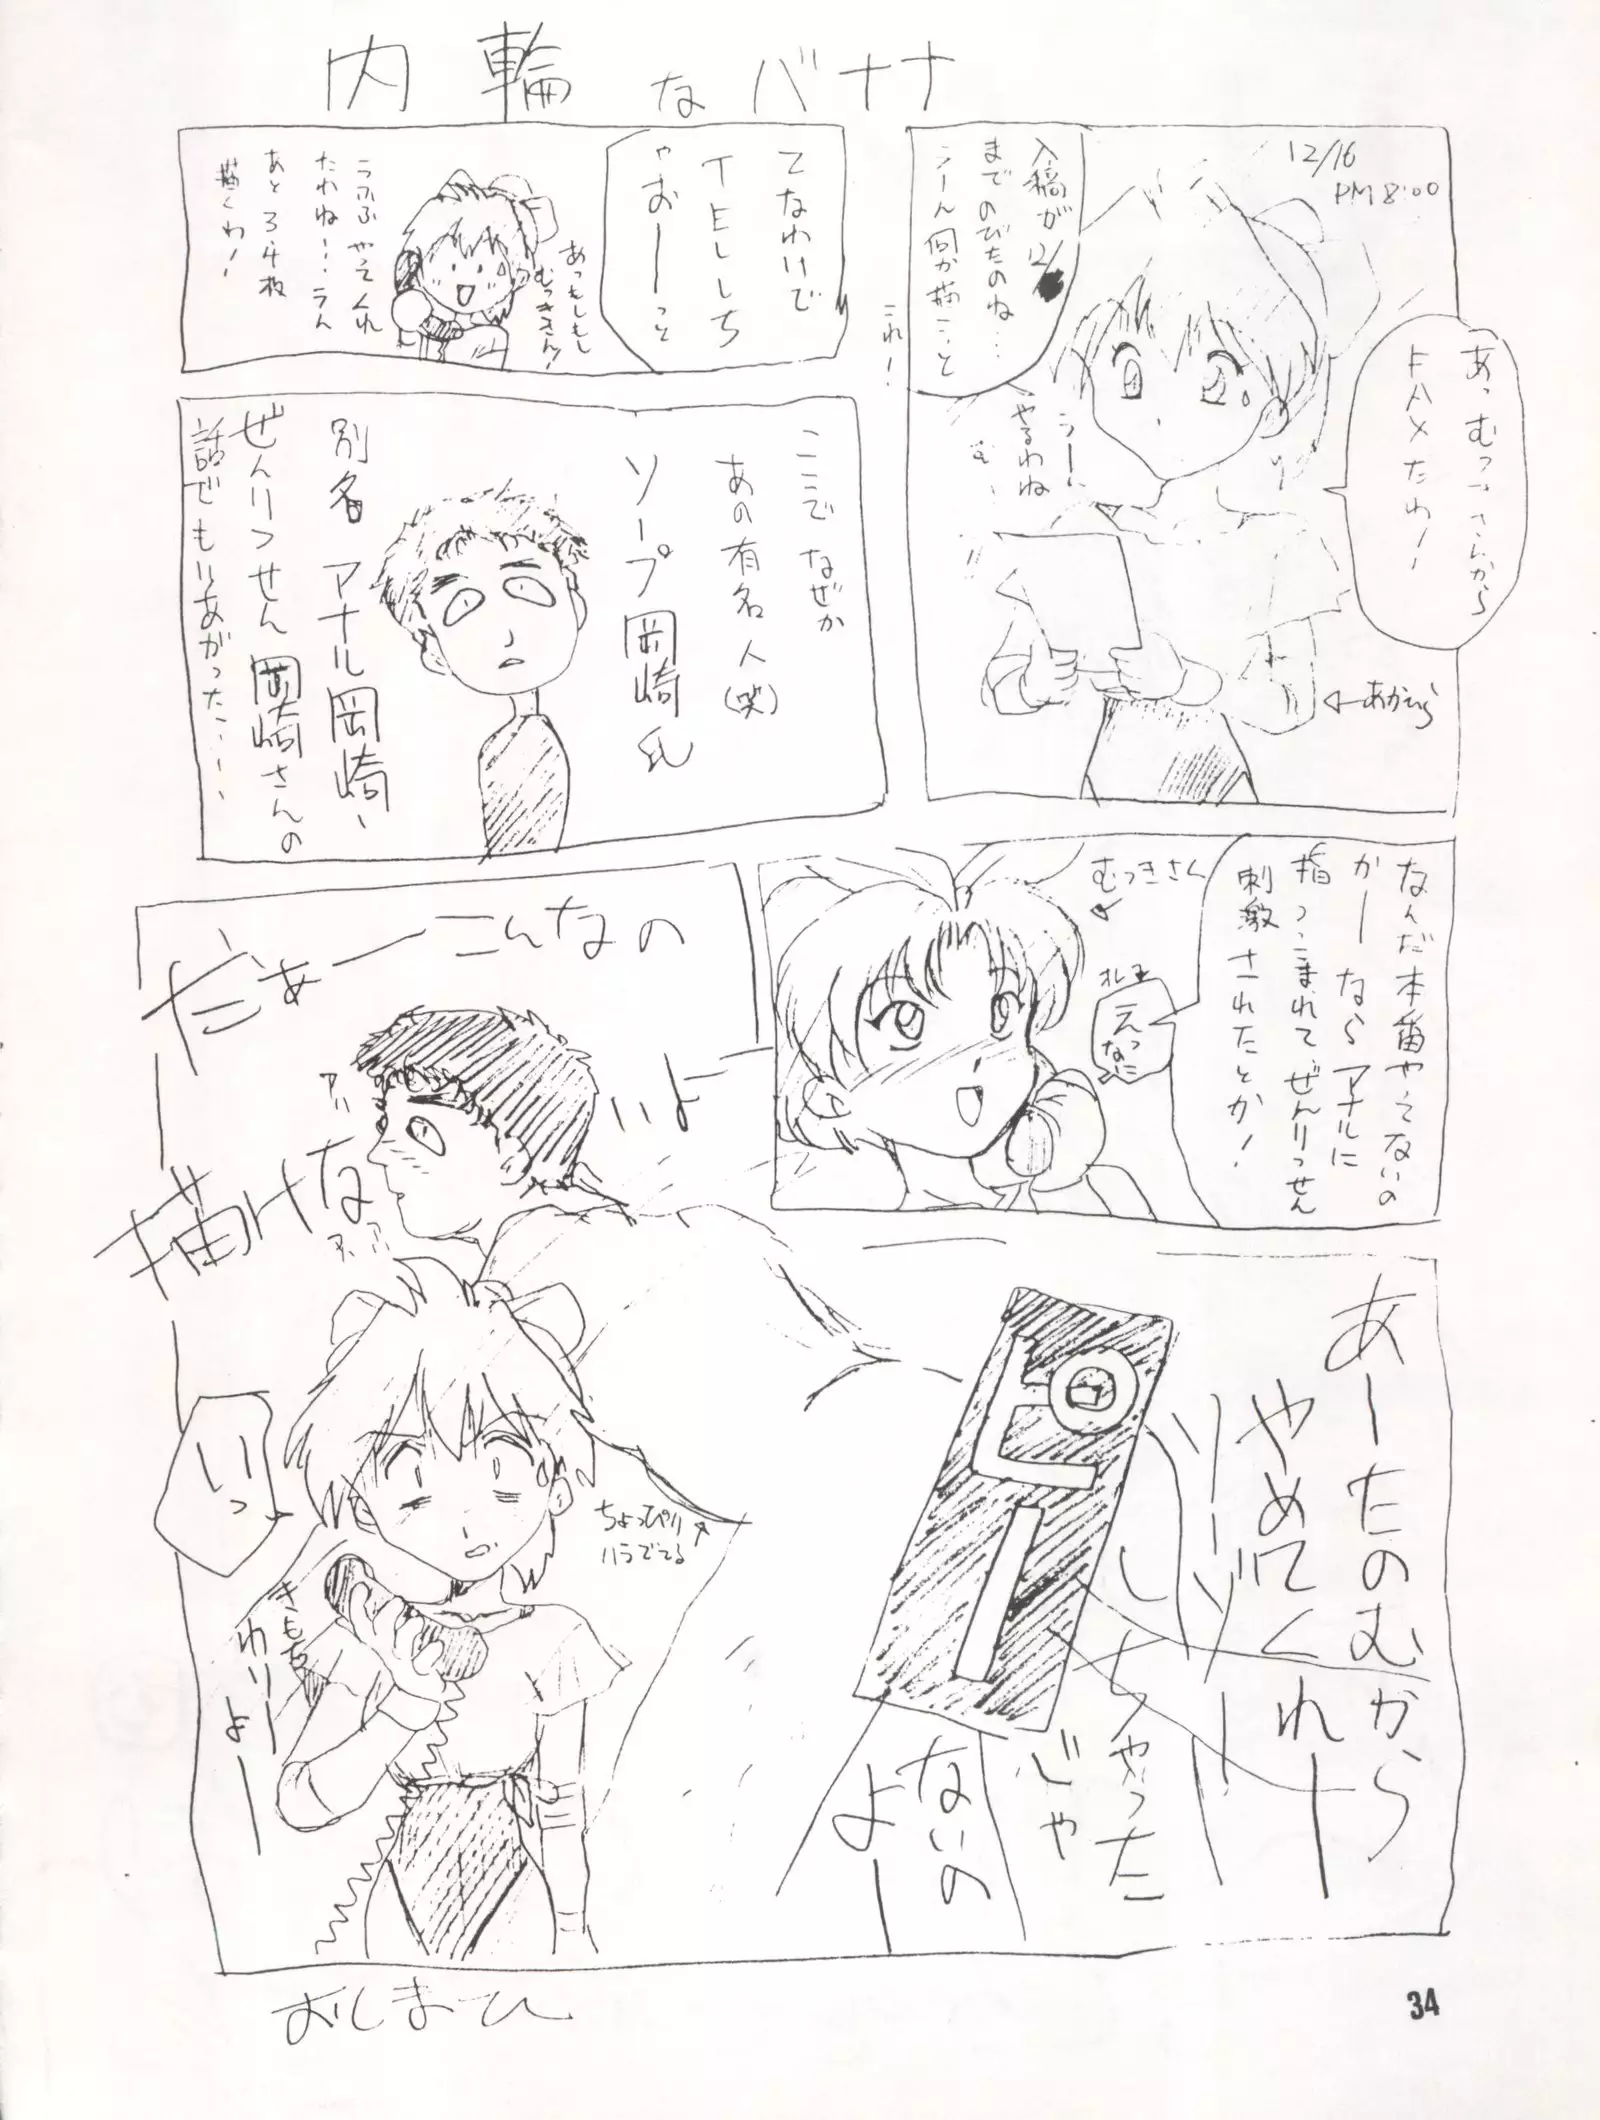 内輪なバナナ
12/16
PM 8:00
あっむつきさんから
FAXだわー
入稿が12/
までのびたのね…
うーん何か描こっと
うー
やるわね
これ!
←あかむら
てなわけで
TELしち
ゃおーっと
あっもしもし
むつきさん!
うふふやってくれ
たわねー…うん
あと3,4枚
描くわ!
ここでなぜか
あの有名人(笑)
ソープ岡崎氏
別名アナル岡崎、
ぜんりつせん岡崎さんの
話でもりあがった…
なんだ本番やってないの
かーならアナルに
指つっこまれてぜんりつせん
刺激されたとか!
むつきさん
オレ
えっ
なに
だぁーこんなの
描けな
いよー
あーたのむから
やめてくれー
ソーゾー
しちゃった
じゃ
ないの
よー
いっ
ちょっぴり
ハラでてる
きもち
わりー
よー
おしまひ
34